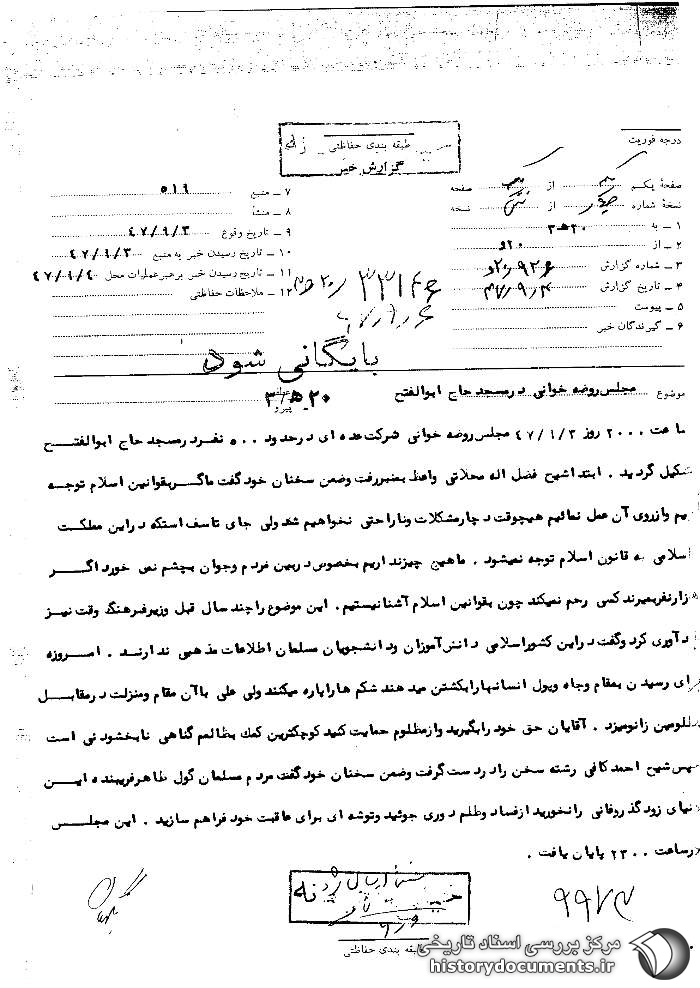 طبقه بندی حفاظتی
گزارش خبر
درجه فوریت
صفحهٔ یکم از صفحه
نسخهٔ شماره از نسخه
۱ ـ به ۲۰ ﻫ ۳
۲ ـ از ۲۰
۳ ـ شماره گزارش
۴ ـ تاریخ گزارش ۴۷/۹/۴
۵ ـ پیوست
۶ ـ گیرندگان خبر
۷ ـ منبع ۵۱۹
۸ ـ منشأ
۹ ـ تاریخ وقوع ۴۷/۹/۳
۱۰ ـ تاریخ رسیدن خبر به منبع ۴۷/۹/۳
۱۱ ـ تاریخ رسیدن خبر برهبرعملیات محل ۴۷/۹/۴
۱۲ ـ ملاحظات حفاظتی
بایگانی شود
موضوع مجلس روضه خوانی در مسجد حاج ابوالفتح
پیرو
ساعت ۲۰۰۰ روز ۴۷/۹/۳ مجلس روضه خوانی شرکت عده ای در حدود ۵۰۰ نفر در مسجد حاج ابوالفتح
شکیل گردید . ابتدا شیح فضل اله محلاتی واعظ بمنبر رفت وضمن سخنان خود گفت ما گر بقوانین اسلام توجه
یم وازروی آن عمل نمائیم هیچوقت دچار مشکلات وناراحتی نخواهیم شد ولی جای تاسف استکه در این مملکت
اسلامی به قانون اسلام توجه نمیشود . ما هین چیز نداریم بخصوص در بین مردم وجوان بچشم نمی خورد اگر
زار نفر بمیرند کسی رحم نمیکند چون بقوانین اسلام آشنا نیستیم . این موضوع را چند سال قبل وزیر فرهنگ وقت نیز
دآوری کرد وگفت در این کشور اسلامی دانش آموزان ودانشجویان مسلمان اطلاعات مذهبی ندارند . امروزه
رای رسیدن بمقام وجاه وپول انسانها را بکشتن میدهند شکم ها را پاره میکنند ولی علی با آن مقام ومنزلت در مقابل
ظلومین زانو میزد . آقایان حق خود را بگیرید واز مظلوم حمایت کنید کوچکترین کمک بظالم گناهی نابخشودنی است
سپس شیح احمد کافی رشته سخن را در دست گرفت وضمن سخنان خود گفت مردم مسلمان گول ظاهر فریبنده این
نیای زود گذر وفانی را نخورید از فساد وظلم دوری جوئید وتوشه ای برای عاقبت خود فراهم سازید . این مجلس
رساعت ۲۳۰۰ پایان یافت .
خیلی
طبقه بندی حفاظتی
مرکز بررسی اسناد تاریخی
historydocuments.ir